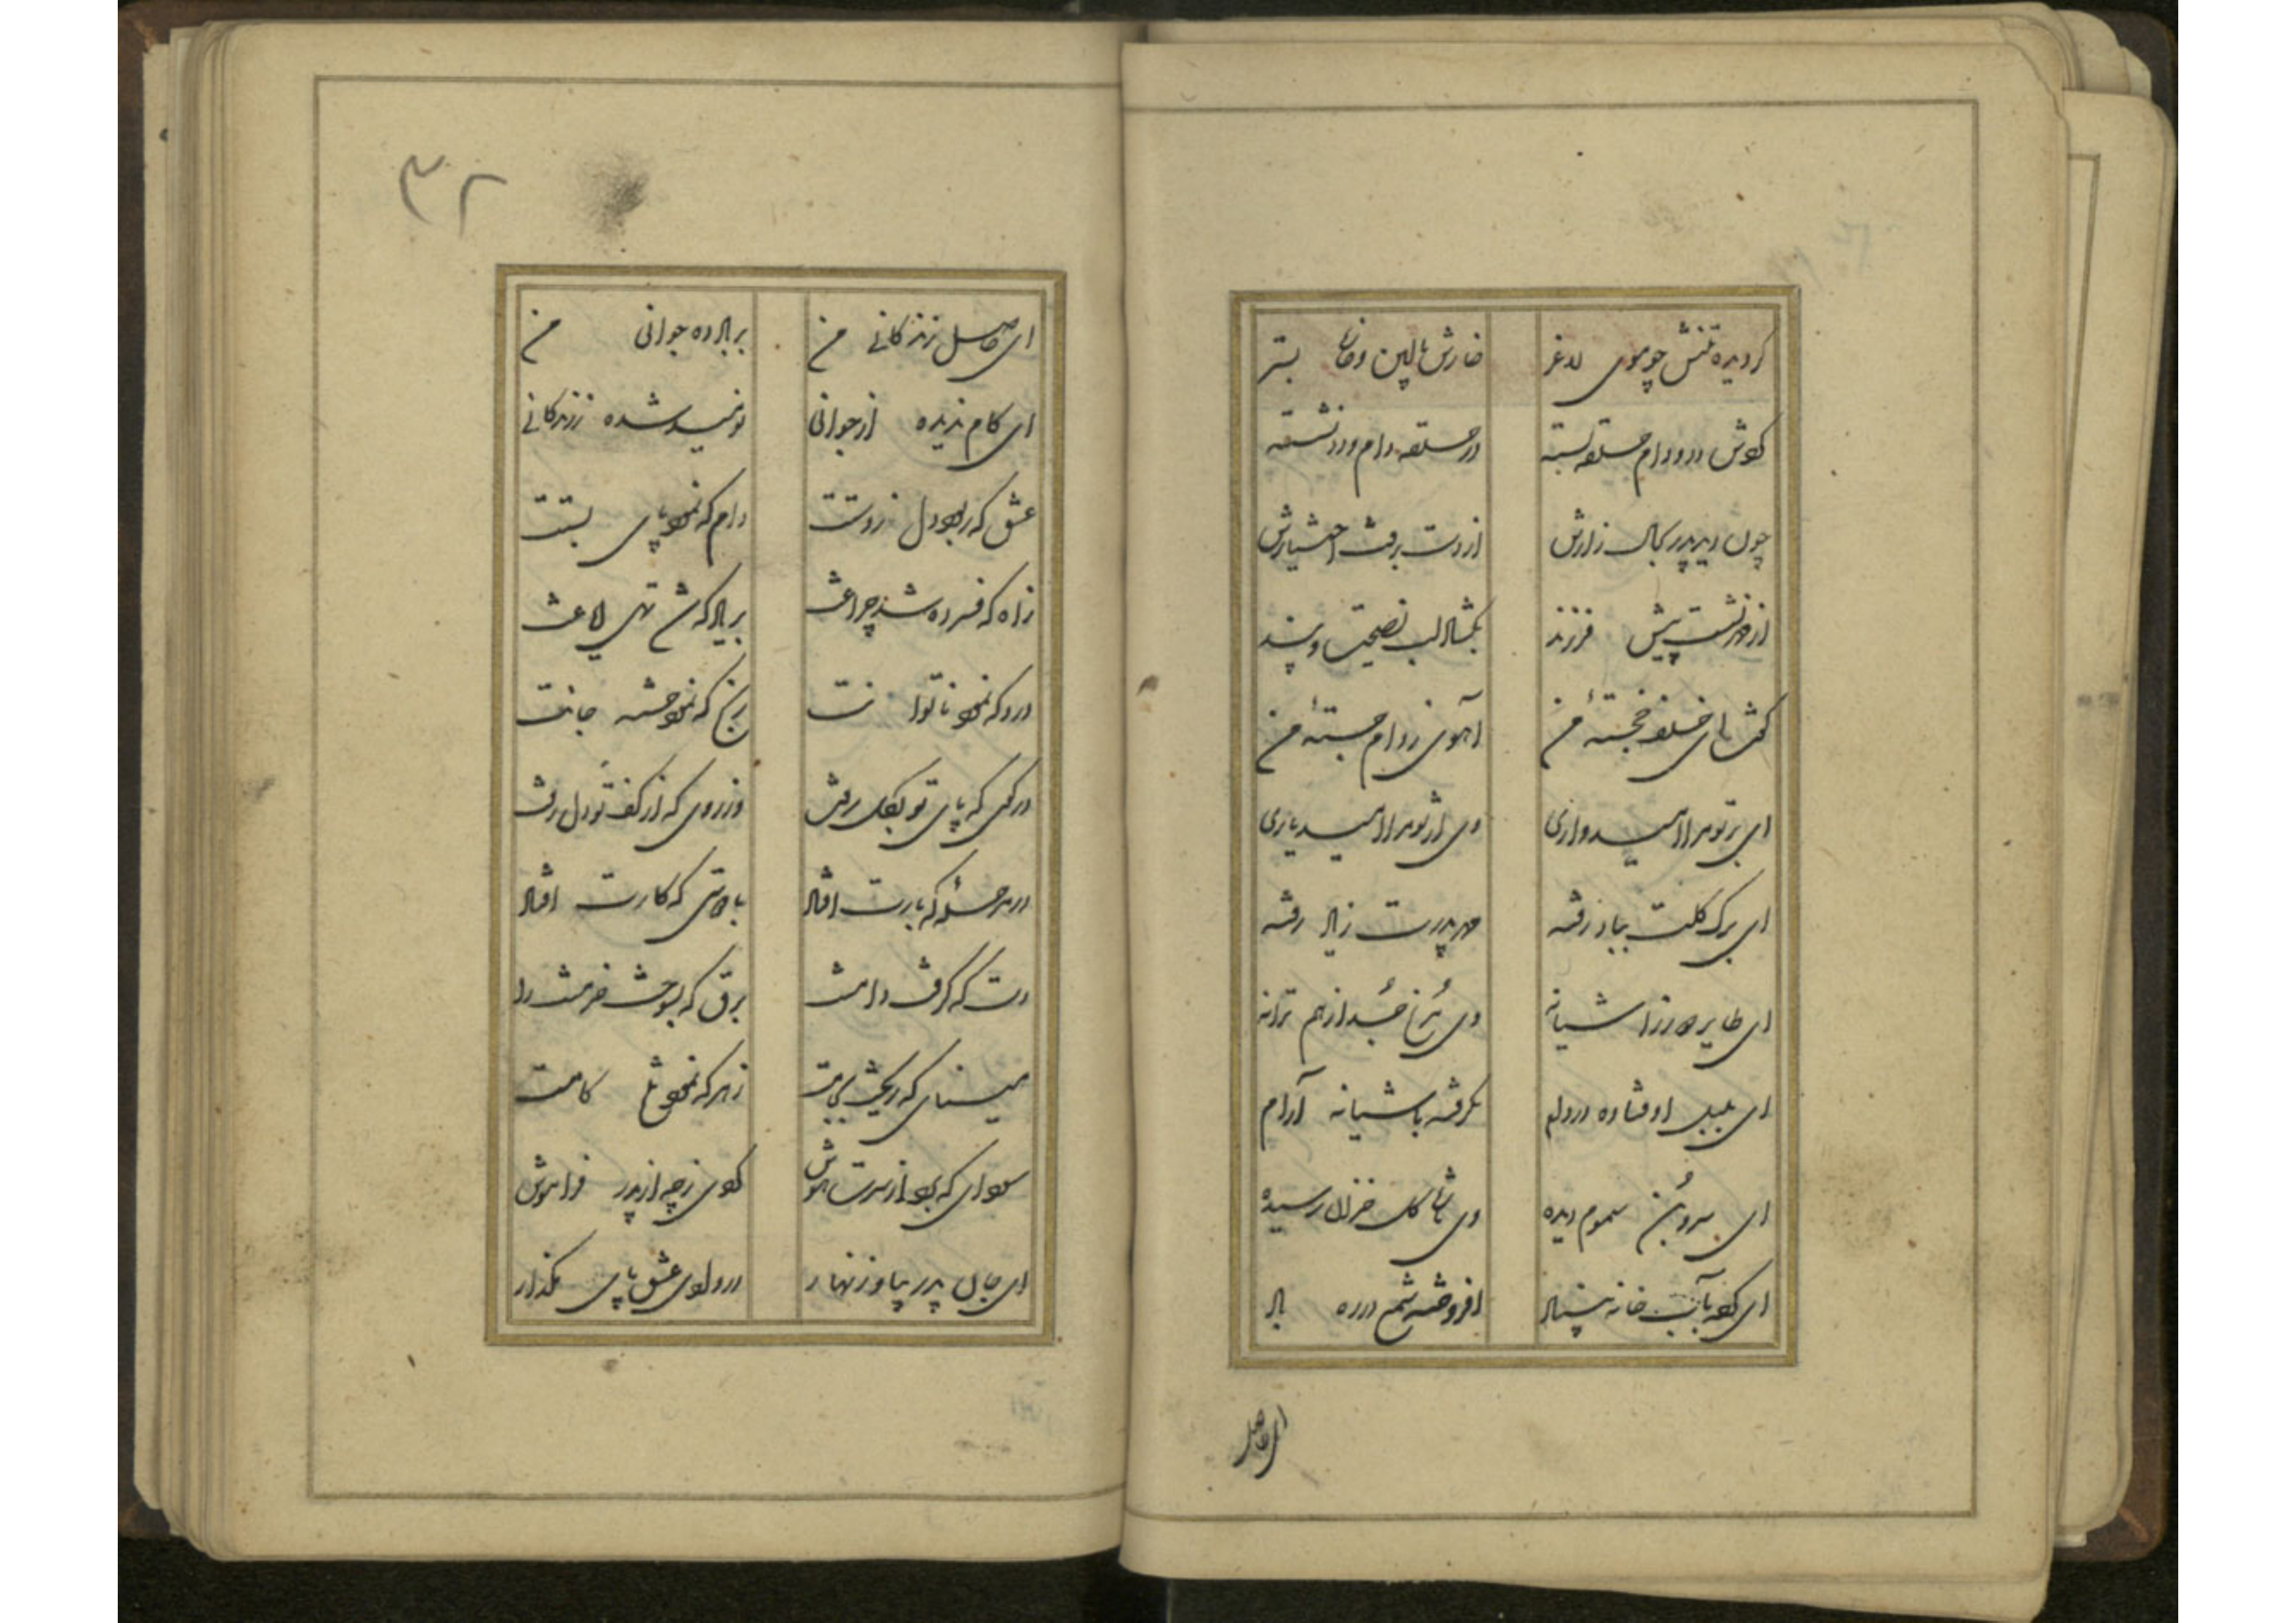 گردیده تنش چو موی لاغر خارش بالین و خاک بستر
گوش دد و دام حلقه بسته در حلقه دام و دد نشسته
چون دید پدر بحال زارش از دست برفت اختیارش
از مهر نشست پیش فرزند بگشاد لب نصیحت و پند
گفت ای خلف خجسته من آهوی ز دام جسته من
ای بر تو مرا امیدواری وی از تو مرا امید یاری
ای برگ گلت بباد رفته مهر پدرت ز یاد رفته
ای طایر دور از آشیانه وی مرغ جدا از هم ترانه
ای بلبل اوفتاده در دام نگرفته باشیانه آرام
ای سروبن سموم دیده وی شاخ گل خزان رسیده
ای کعبه بآب خانه بنیاد افروخته شمع در ره باد
ای حاصل
۳۲
ای حاصل زندگانی من بر باد ده جوانی من
ای کام ندیده از جوانی نومید شده ز زندگانی
عشق که ربود دل ز دستت دام که نمود پای بستت
ز آه که فسرده شد چراغت بر یاد که شد تهی ایاغت
درد که نمود ناتوانت رنج که نمود خسته جانت
در کوی که پای تو بگل رفت وز روی که از کف تو دل رفت
در مرحله که بارت افتاد با که کارت افتاد
دست که گرفت دامنت برق که بسوخت خرمنت را
مینای که ریخت می بجامت زهر که نمود تلخ کامت
سودای که برد از سرت هوش گوی ز چه از پدر فراموش
ای جان پدر بیا و زنهار در وادی عشق پای مگذار